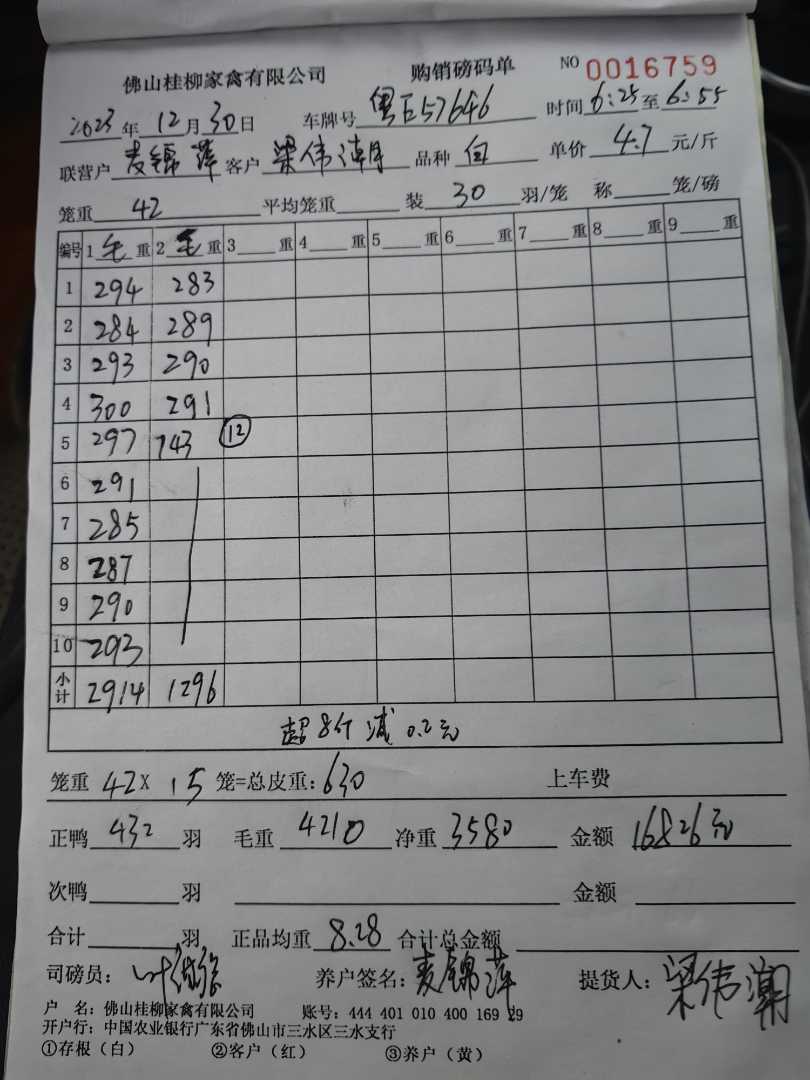 佛山桂柳家禽有限公司 购销磅码单 NO 0016759
2023年12月30日 车牌号 粤E57646 时间 6:25至6:55
联营户 麦锦萍 客户 梁伟潮 品种 白 单价 4.7 元/斤
笼重 42 平均笼重 装 30 羽/笼 称 笼/磅
编号 1毛重 2毛重 3重 4重 5重 6重 7重 8重 9重
1 294 283
2 284 289
3 293 290
4 300 291
5 297 143 12
6 291
7 285
8 287
9 290
10 293
小计 2914 1296
超8斤减0.2元
笼重 42X 15 笼=总皮重:630 上车费
正鸭 432 羽 毛重 4210 净重 3580 金额 16826元
次鸭 羽 金额
合计 羽 正品均重 8.28 合计总金额
司磅员: 叶 养户签名: 麦锦萍 提货人: 梁伟潮
户 名: 佛山桂柳家禽有限公司 账号: 444 401 010 400 169 29
开户行: 中国农业银行广东省佛山市三水区三水支行
①存根(白) ②客户(红) ③养户(黄)